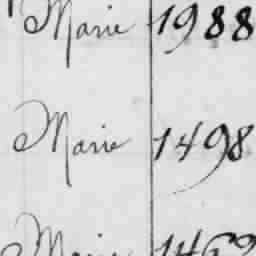 Marie 1988
Marie 1498
Marie